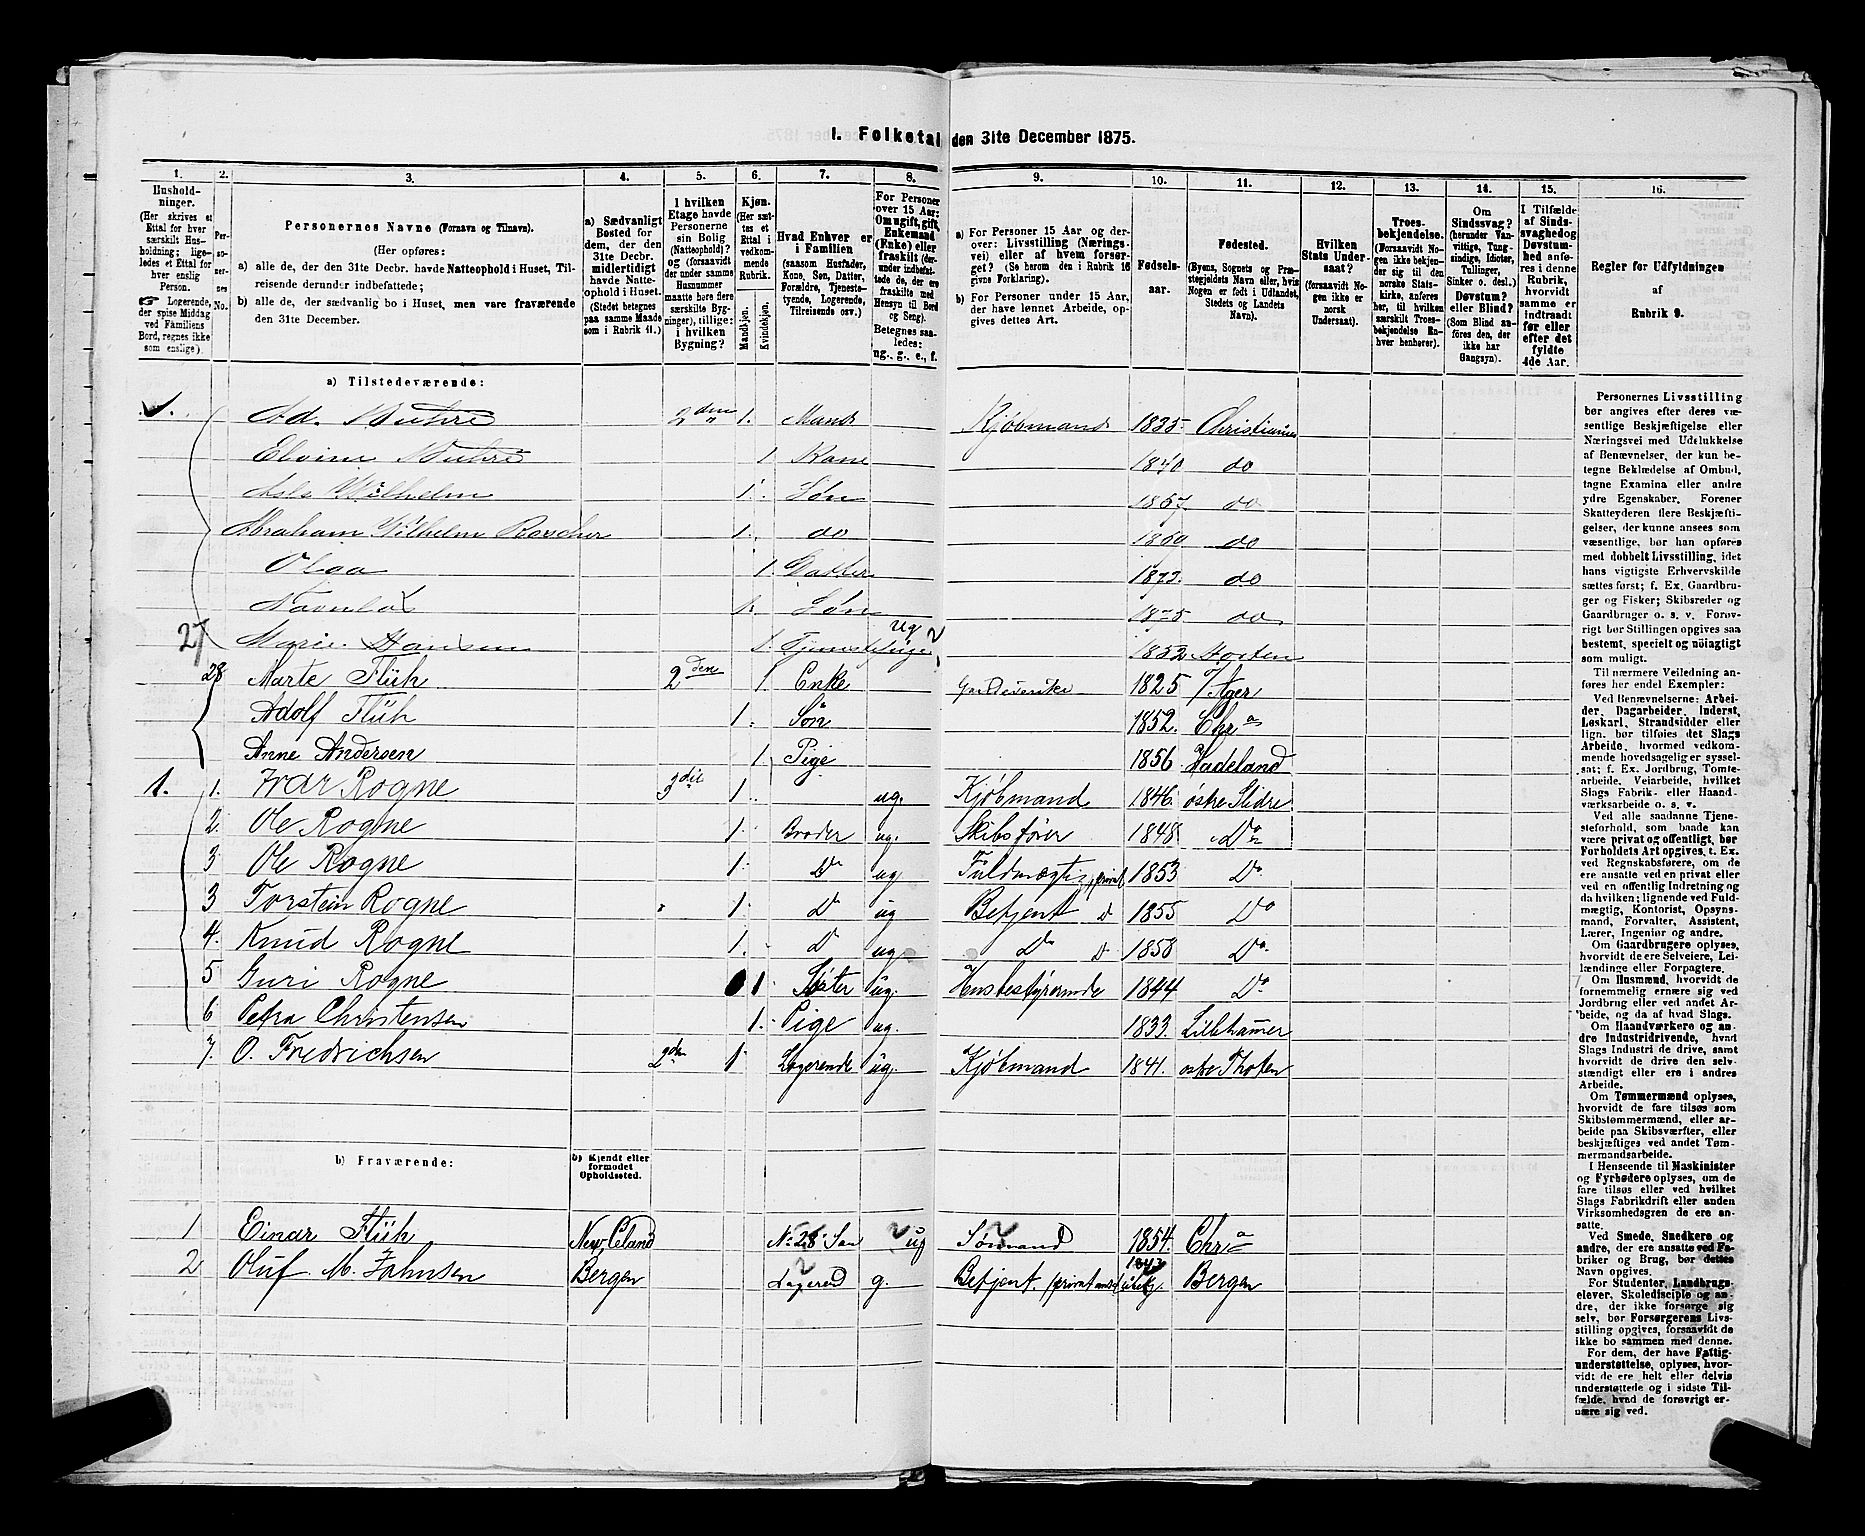 1. Folketal den 31te December 1875.
1.
Husholdninger.
(Her skrives et Ettal for hver særskilt Husholdning; ligeledes et Ettal for hver enslig Person.
Logerende, der spise Middag ved Familiens Bord, regnes ikke som enslige).
2.
Personernes No.
3.
Personernes Navne (Fornavn og Tilnavn).
(Her opføres:
a) alle de, der den 31te Decbr. havde Natteophold i Huset, Tilreisende derunder indbefattede;
b) alle de, der sædvanlig bo i Huset, men vare fraværende den 31te December.
4.
a) Sædvanligt Bosted for dem, der den 31te Decbr. midlertidigt havde Natteophold i Huset. (Stedet betegnes paa samme Maade som i Rubrik 11.)
5.
I hvilken Etage havde Personerne sin Bolig (Natteophold)? og (forsaavidt der under samme Husnummer maatte høre flere særskilte Bygninger), tillige: i hvilken Bygning?
6.
Kjøn.
(Her sættes et Ettal i vedkommende Rubrik.
Mandkjøn.
Kvindekjøn.
7.
Hvad Enhver er i Familien
(saasom Husfader, Kone, Søn, Datter, Forældre, Tjenestetyende, Logerende, Tilreisende osv.)
8.
For Personer over 15 Aar: Omugift, gift, Enkemand (Enke) eller fraskilt (derunder indbefattede de, der ere fraskilte med Hensyn til Bord og Seng).
Betegnes saaledes: ug., g., e., f.
9.
a) For Personer 15 Aar og derover: Livsstilling (Næringsvei) eller af hvem forsørget? (Se herom den i Rubrik 16 givne Forklaring).
b) For Personer under 15 Aar, der have lønnet Arbeide, opgives dettes Art.
10.
Fødselsaar.
11.
Fødested.
(Byens, Sognets og Præstegjeldets Navn, eller, hvis Nogen er født i Udlandet, Stedets og Landets Navn).
12.
Hvilken Stats Undersaat?
(forsaavidt Nogen ikke er norsk Undersaat).
13.
Troesbekjendelse.
(Forsaavidt Nogen ikke bekjender sig til den norske Statskirke, anføres her, til hvilken særskilt Troesbekjendelse Enhver henhører).
14.
Om Sindssvag? (herunder Vanvittige, Tungsindige, Idioter, Tullinger, Sinker o. desl.) Døvstum? eller Blind? (Som Blind anføres den, der ikke har Gangsyn).
15.
I Tilfælde af Sindssvaghed og Døvstumhed anføres i denne Rubrik, hvorvidt samme er indtraadt før eller efter det fyldte 4de Aar.
16.
Regler for Udfyldningen af Rubrik 9.
a) Tilstedeværende:
Ad. Buhre 2den 1. Mand Kjøbmand 1835 Christiania
Elvine Buhre 1 Kone 1840 do
Wilhelm 1. Søn 1867 do
Abraham Wilhelm Roscher 1. do do
1. Datter 1873. do
1. Søn 1875 do
27 Marie Hansen 1. ug 1852 Horten
28 Marte Flüh 2den 1 Enke 1825 V Ager
Adolf Flüh 1. Søn 1852. Chra
Anne Andersen 1 Pige 1856 Hadeland
1. 1. Ivar Rogne 1. ug. Kjøbmand 1846. østre Slidre
2. Ole Rogne 1. Broder ug. Skibsfører 1848 Do
3 Ole Rogne 1. D ug Fuldmægtig, privat 1853 Do
3 Torstein Rogne 1. D ug Betjent D 1855 Do
4. Knud Rogne 1. D ug Do D 1858 Do.
5 Guri Rogne 1. Søster ug. Husbestyrerinde 1844 Do
6 Petra Christensen 1. Pige ug. 1833. Lillehamer
7. O. Fredrichsen 2den 1 Logerende ug. Kjøbmand 1841. østre Thoten
b) Fraværende:
b) Kjendt eller formodet Opholdssted.
1 Einar Flüh New Celand No 28 Søn ug Sømand 1854. Chra
2 Oluf M. Johnsen Bergen Logerend g. Betjent. (privat Bergen
Personernes Livsstilling bør angives efter deres væsentlige Beskjæftigelse eller Næringsvei med Udelukkelse af Benævnelser, der kun betegne Beklædelse af Ombud, tagne Examina eller andre ydre Egenskaber. Forener Skatteyderen flere Beskjæftigelser, der kunne ansees som væsentlige, bør han opføres med dobbelt Livsstilling, idet hans vigtigste Erhvervskilde sættes først; f. Ex. Gaardbruger og Fisker; Skibsreder og Gaardbruger o. s. v. Forøvrigt bør Stillingen opgives saa bestemt, specielt og nøiagtigt som muligt.
Til nærmere Veiledning anføres her endel Exempler:
Ved Benævnelserne: Arbeider, Dagarbeider, Inderst, Løskarl, Strandsidder eller lign. bør tilføies det Slags Arbeide, hvormed vedkommende hovedsagelig er sysselsat; f. Ex. Jordbrug, Tomtearbeide, Veiarbeide, hvilket Slags Fabrik- eller Haandværksarbeide o. s. v.
Ved alle saadanne Tjenesteforhold, som baade kan være privat og offentligt, bør Forholdets Art opgives, t. Ex. ved Regnskabsførere, om de ere ansatte ved en privat eller ved en offentlig Indretning og da hvilken; lignende ved Fuldmægtig, Kontorist, Opsynsmand, Forvalter, Assistent, Lærer, Ingeniør og andre.
Om Gaardbrugere oplyses, hvorvidt de ere Selveiere, Leilændinge eller Forpagtere.
Om Husmænd, hvorvidt de fornemmelig ernære sig ved Jordbrug eller ved andet Arbeide, og da af hvad Slags.
Om Haandværkere og andre Industridrivende, hvad Slags Industri de drive, samt hvorvidt de drive den selvstændigt eller ere i andres Arbeide.
Om Tømmermænd oplyses, hvorvidt de fare tilsøs som Skibstømmermænd, eller arbeide paa Skibsværfter, eller beskjæftiges ved andet Tømmermandsarbeide.
I Henseende til Maskinister og Fyrbødere oplyses, om de fare tilsøs eller ved hvilket Slags Fabrikdrift eller anden Virksomhedsgren de ere ansatte.
Ved Smede, Snedkere og andre, der ere ansatte ved Fabriker og Brug, bør dettes Navn opgives.
For Studenter, Landbrugselever, Skoledisciple og andre, der ikke forsørge sig selv, bør Forsørgerens Livsstilling opgives, forsaavidt de ikke bo sammen med denne.
For dem, der have Fattigunderstøttelse, oplyses, hvorvidt de ere helt eller delvis understøttede og i sidste Tilfælde, hvad de forøvrigt ernære sig ved.